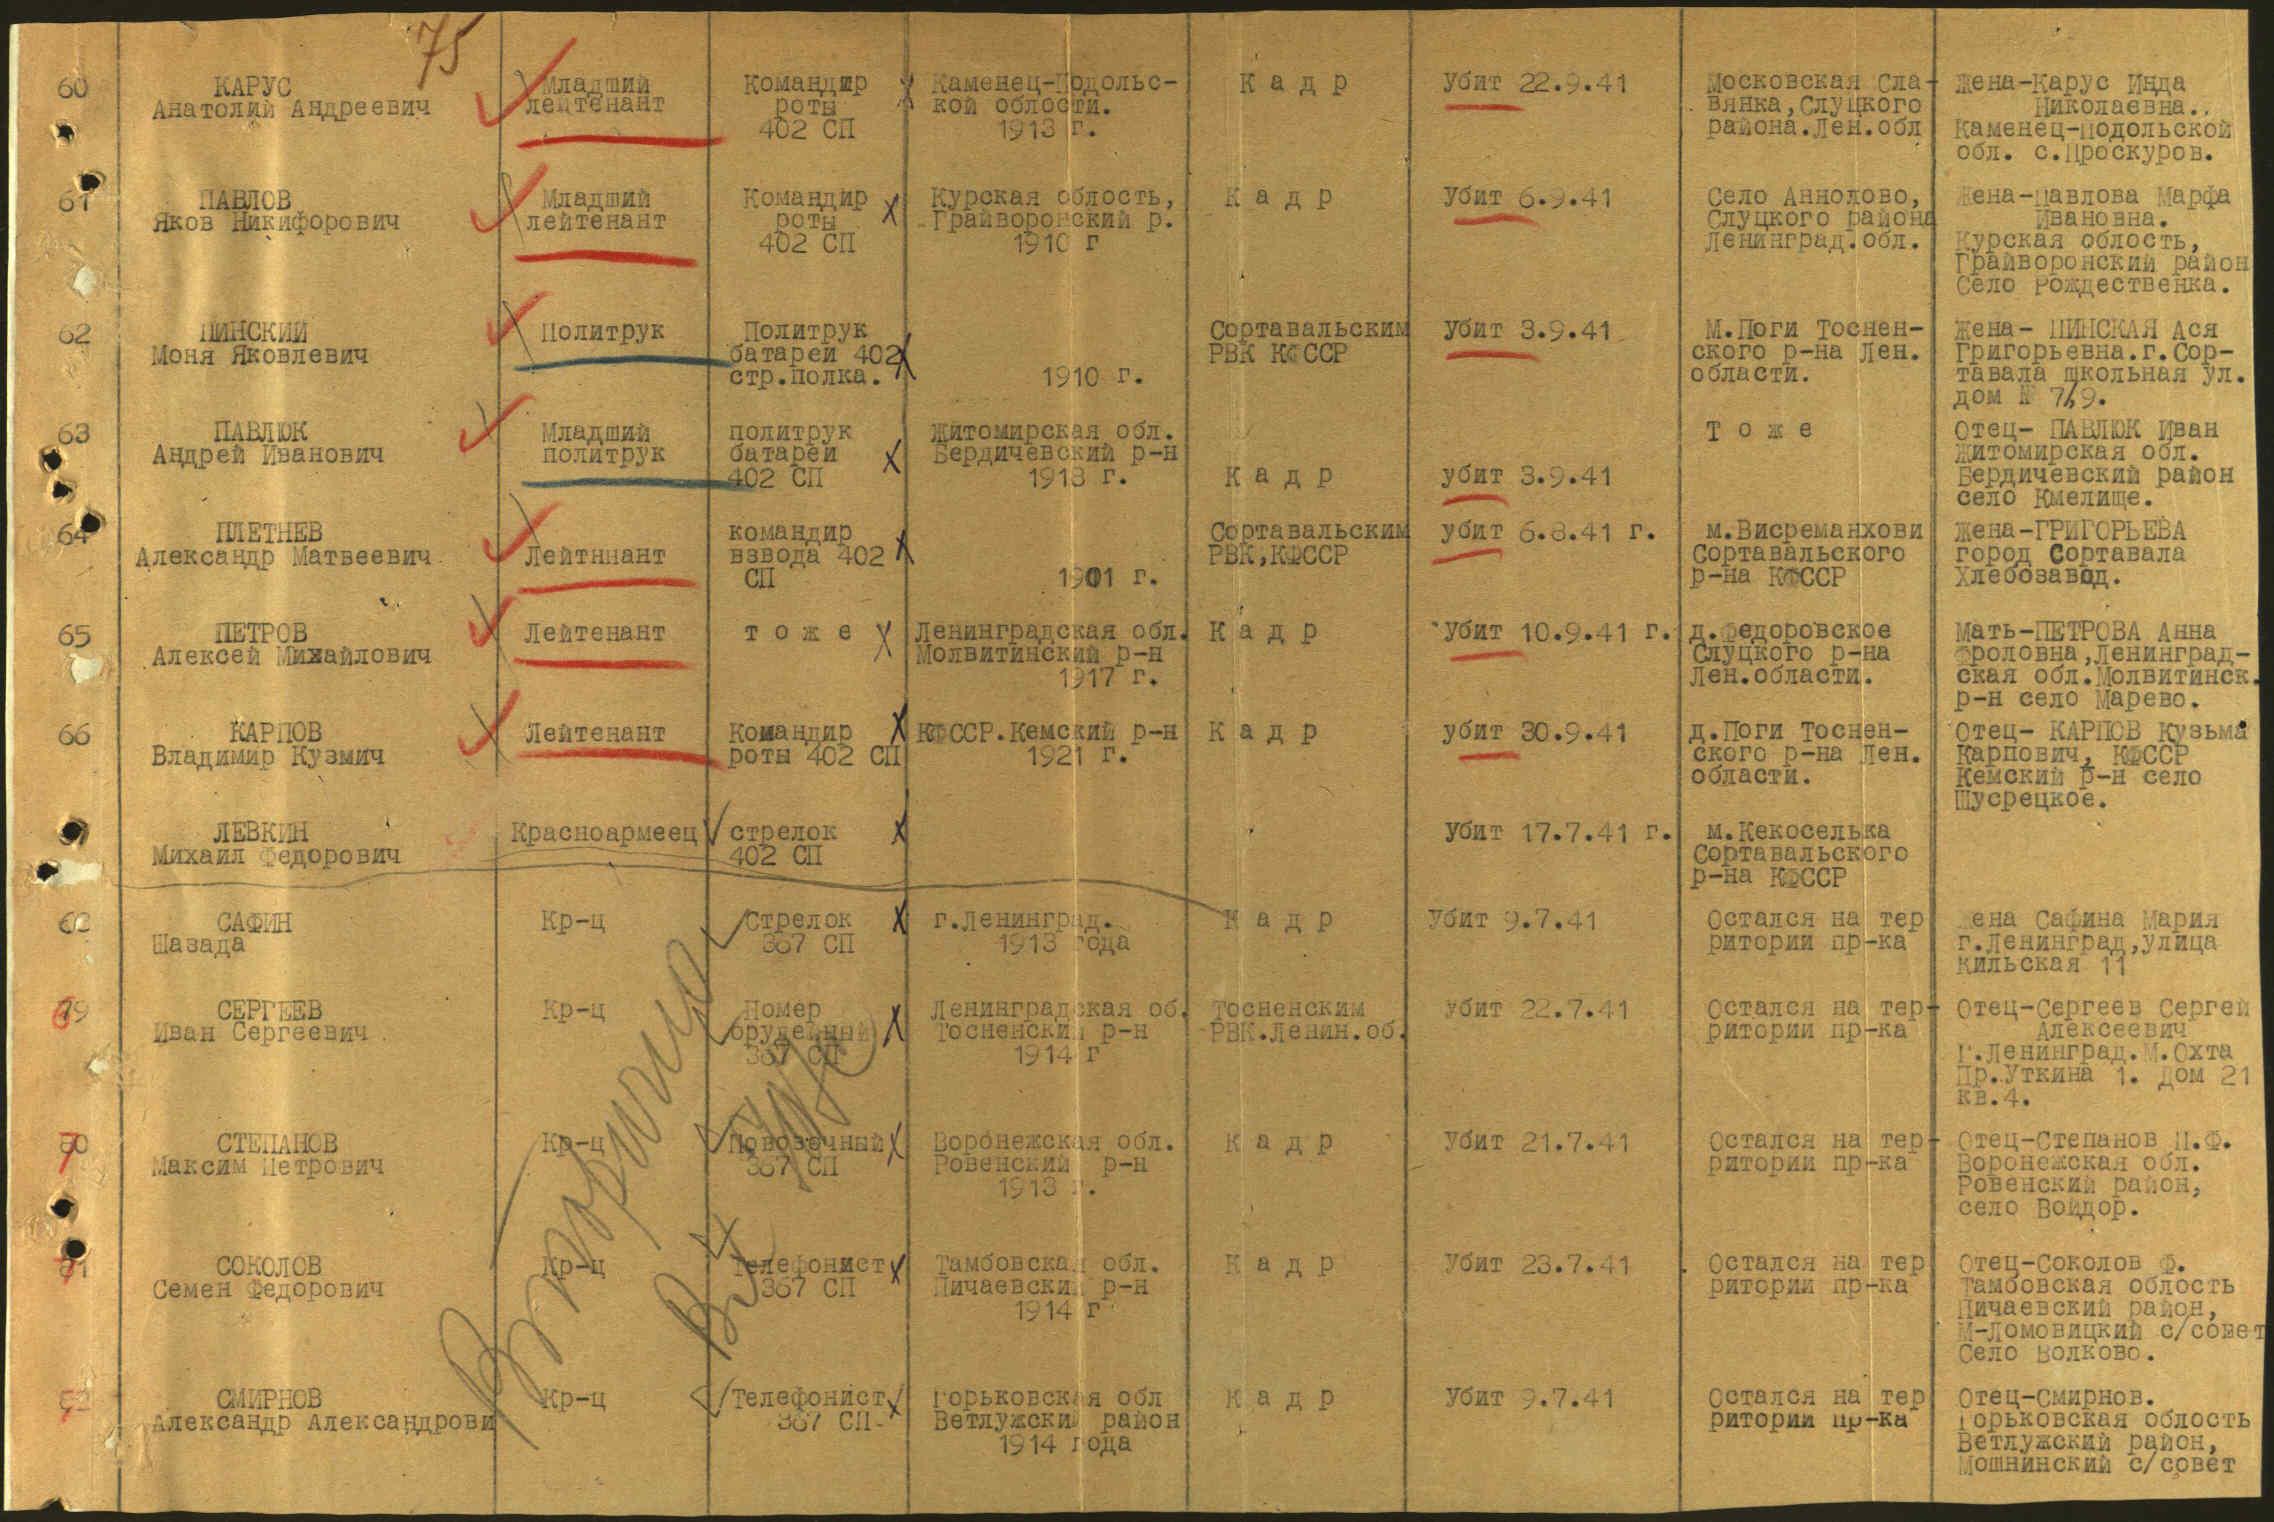 75
60
КАРУС
Анатолий Андреевич
Младший
лейтенант
Командир
роты
402 СП
Каменец-Подольс-
кой облости.
1913 г.
К а д р
Убит 22.9.41
Московская Сла-
вянка,Слуцкого
района.Лен.обл
Жена-Карус Инда
Николаевна.
Каменец-Подольской
обл. с.Проскуров.
61
ПАВЛОВ
Яков Никифорович
Младший
лейтенант
Командир
роты
402 СП
Курская облость,
Грайворонский р.
1910 г
К а д р
Убит 6.9.41
Село Аннолово,
Слуцкого района
Ленинград.обл.
Жена-Павлова Марфа
Ивановна.
Курская облость,
Грайворонский район
Село Рождественка.
62
ПИНСКИЙ
Моня Яковлевич
Политрук
Политрук
батареи 402
стр.полка.
1910 г.
Сортавальским
РВК КФССР
Убит 3.9.41
М.Поги Тоснен-
ского р-на Лен.
области.
Жена- ПИНСКАЯ Ася
Григорьевна.г.Сор-
тавала школьная ул.
дом № 7/9.
63
ПАВЛЮК
Андрей Иванович
Младший
политрук
политрук
батареи
402 СП
Житомирская обл.
Бердичевский р-н
1913 г.
К а д р
убит 3.9.41
Т о ж е
Отец- ПАВЛЮК Иван
Житомирская обл.
Бердичевский район
село Кмелище.
64
ПЛЕТНЕВ
Александр Матвеевич
Лейтннант
командир
взвода 402
СП
1901 г.
Сортавальским
РВК,КФССР
убит 6.8.41 г.
м.Висреманхови
Сортавальского
р-на КФССР
Жена-ГРИГОРЬЕВА
город Сортавала
Хлебозавод.
65
ПЕТРОВ
Алексей Михайлович
Лейтенант
т о ж е
Ленинградская обл.
Молвитинский р-н
1917 г.
К а д р
Убит 10.9.41 г.
д.Федоровское
Слуцкого р-на
Лен.области.
Мать-ПЕТРОВА Анна
Фроловна,Ленинград-
ская обл.Молвитинск.
р-н село Марево.
66
КАРПОВ
Владимир Кузмич
Лейтенант
Командир
роты 402 СП
КФССР.Кемский р-н
1921 г.
К а д р
убит 30.9.41
д.Поги Тоснен-
ского р-на Лен.
области.
Отец- КАРПОВ Кузьма
Карпович, КФССР
Кемский р-н село
Шусрецкое.
ЛЕВКИН
Михаил Федорович
Красноармеец
стрелок
402 СП
Убит 17.7.41 г.
м.Кекоселька
Сортавальского
р-на КФССР
САФИН
Шазада
Кр-ц
Стрелок
367 СП
г.Ленинград.
1913 года
К а д р
Убит 9.7.41
Остался на тер
ритории пр-ка
Жена Сафина Мария
г.Ленинград,улица
Кильская 11
СЕРГЕЕВ
Иван Сергеевич
Кр-ц
Номер
орудейный
367 СП
Ленинградская об.
Тосненский р-н
1914 г
Тосненским
РВК.Ленин.об.
Убит 22.7.41
Остался на тер-
ритории пр-ка
Отец-Сергеев Сергей
Алексеевич
Г.Ленинград.М.Охта
Пр.Уткина 1. Дом 21
кв.4.
СТЕПАНОВ
Максим Петрович
Кр-ц
Повозочный
367 СП
Воронежская обл.
Ровенский р-н
1913 г.
К а д р
Убит 21.7.41
Остался на тер-
ритории пр-ка
Отец-Степанов П.Ф.
Воронежская обл.
Ровенский район,
село Войдор.
СОКОЛОВ
Семен Федорович
Кр-ц
Телефонист
367 СП
Тамбовская обл.
Пичаевский р-н
1914 г
К а д р
Убит 23.7.41
Остался на тер
ритории пр-ка
Отец-Соколов Ф.
Тамбовская облость
Пичаевский район,
М-Ломовицкий с/совет
Село Волково.
СМИРНОВ
Александр Александрови
Кр-ц
Телефонист
367 СП-
Горьковская обл
Ветлужский район
1914 года
К а д р
Убит 9.7.41
Остался на тер
ритории пр-ка
Отец-Смирнов.
Горьковская облость
Ветлужский район,
Мошнинский с/совет
Вторично